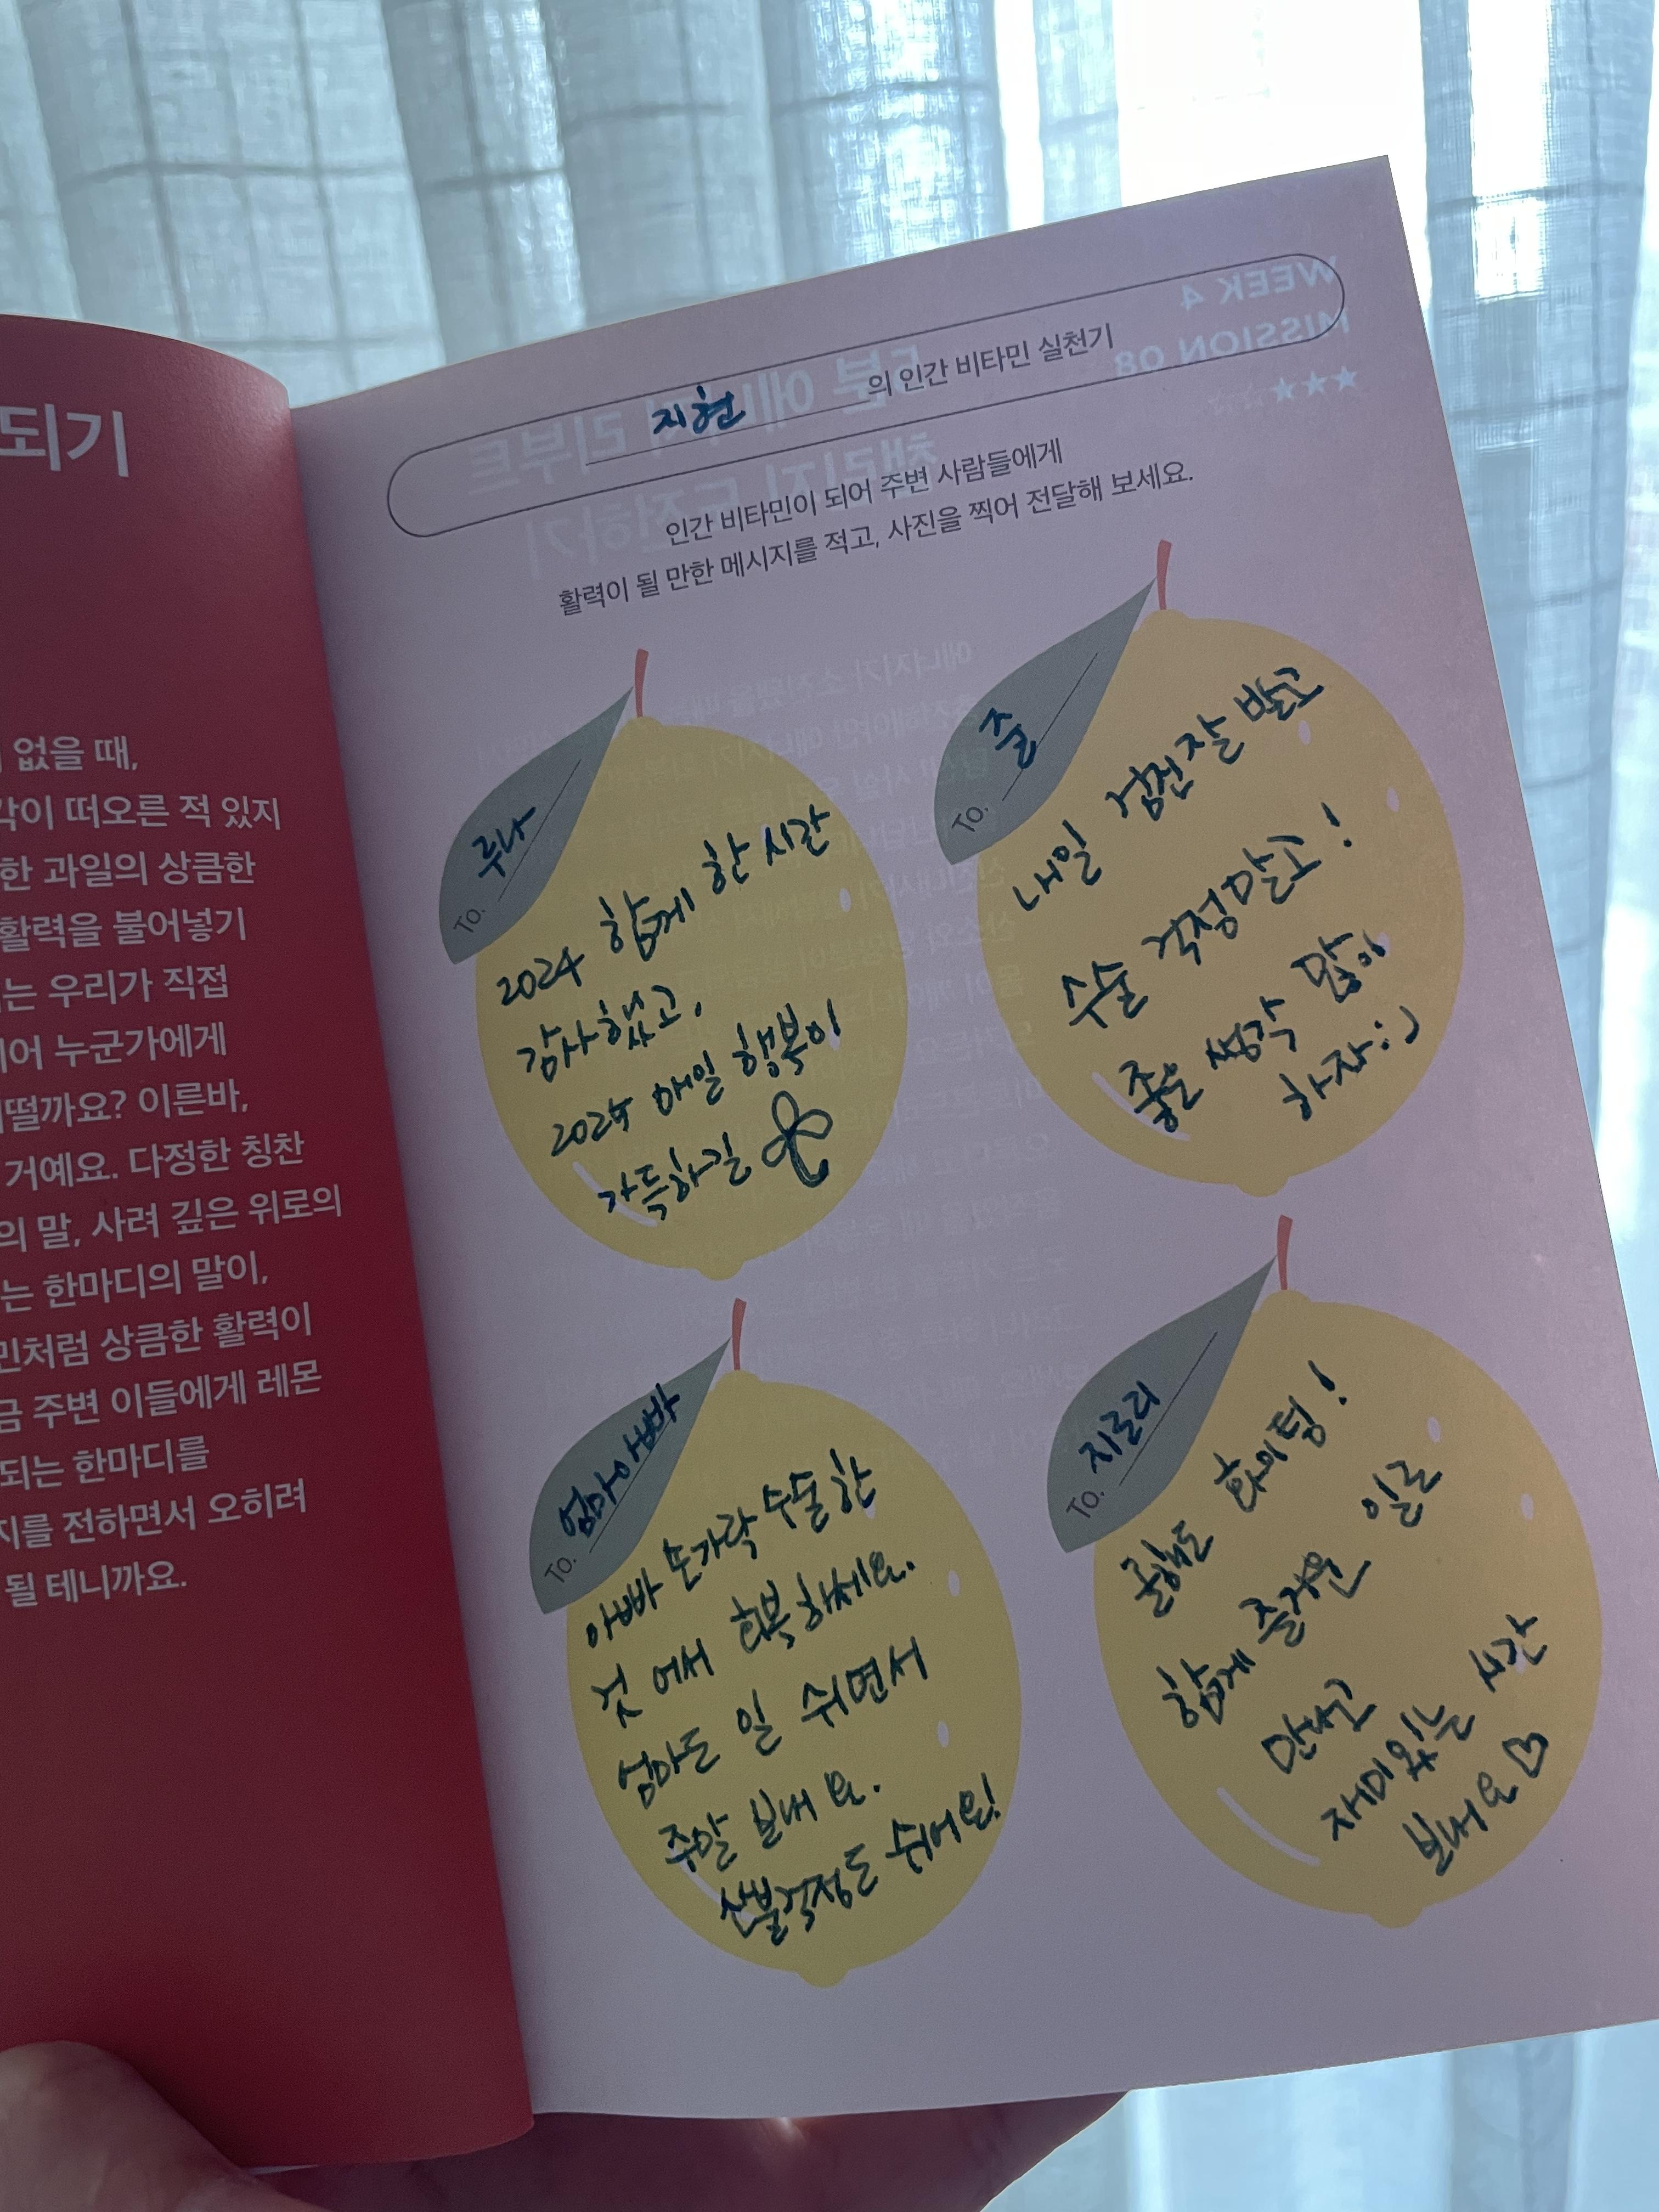 되기
없을 때,
각이 떠오른 적 있지
한 과일의 상큼한
활력을 불어넣기
는 우리가 직접
어 누군가에게
떨까요? 이른바,
거예요. 다정한 칭찬
의 말, 사려 깊은 위로의
는 한마디의 말이,
민처럼 상큼한 활력이
금 주변 이들에게 레몬
되는 한마디를
지를 전하면서 오히려
될 테니까요.
지현 의 인간 비타민 실천기
인간 비타민이 되어 주변 사람들에게
활력이 될 만한 메시지를 적고, 사진을 찍어 전달해 보세요.
TO. 루나
2024 함께 한 시간
감사했고,
2025 매일 행복이
가득하길
TO. 줄
내일 검진 잘 받고
수술 걱정말고!
좋은 생각 많이
하자:)
TO. 엄마아빠
아빠 손가락 수술한
것 어서 회복하세요.
엄마도 일 쉬면서
주말 보내요.
산불걱정도 쉬어요!
TO. 지로리
올해도 화이팅!
함께 즐거운 일로
만나고
재미있는 시간
보내요♡
WEEK 4
MISSION 08
★★★☆☆
5분 에너지 리부트
챌린지 도전하기